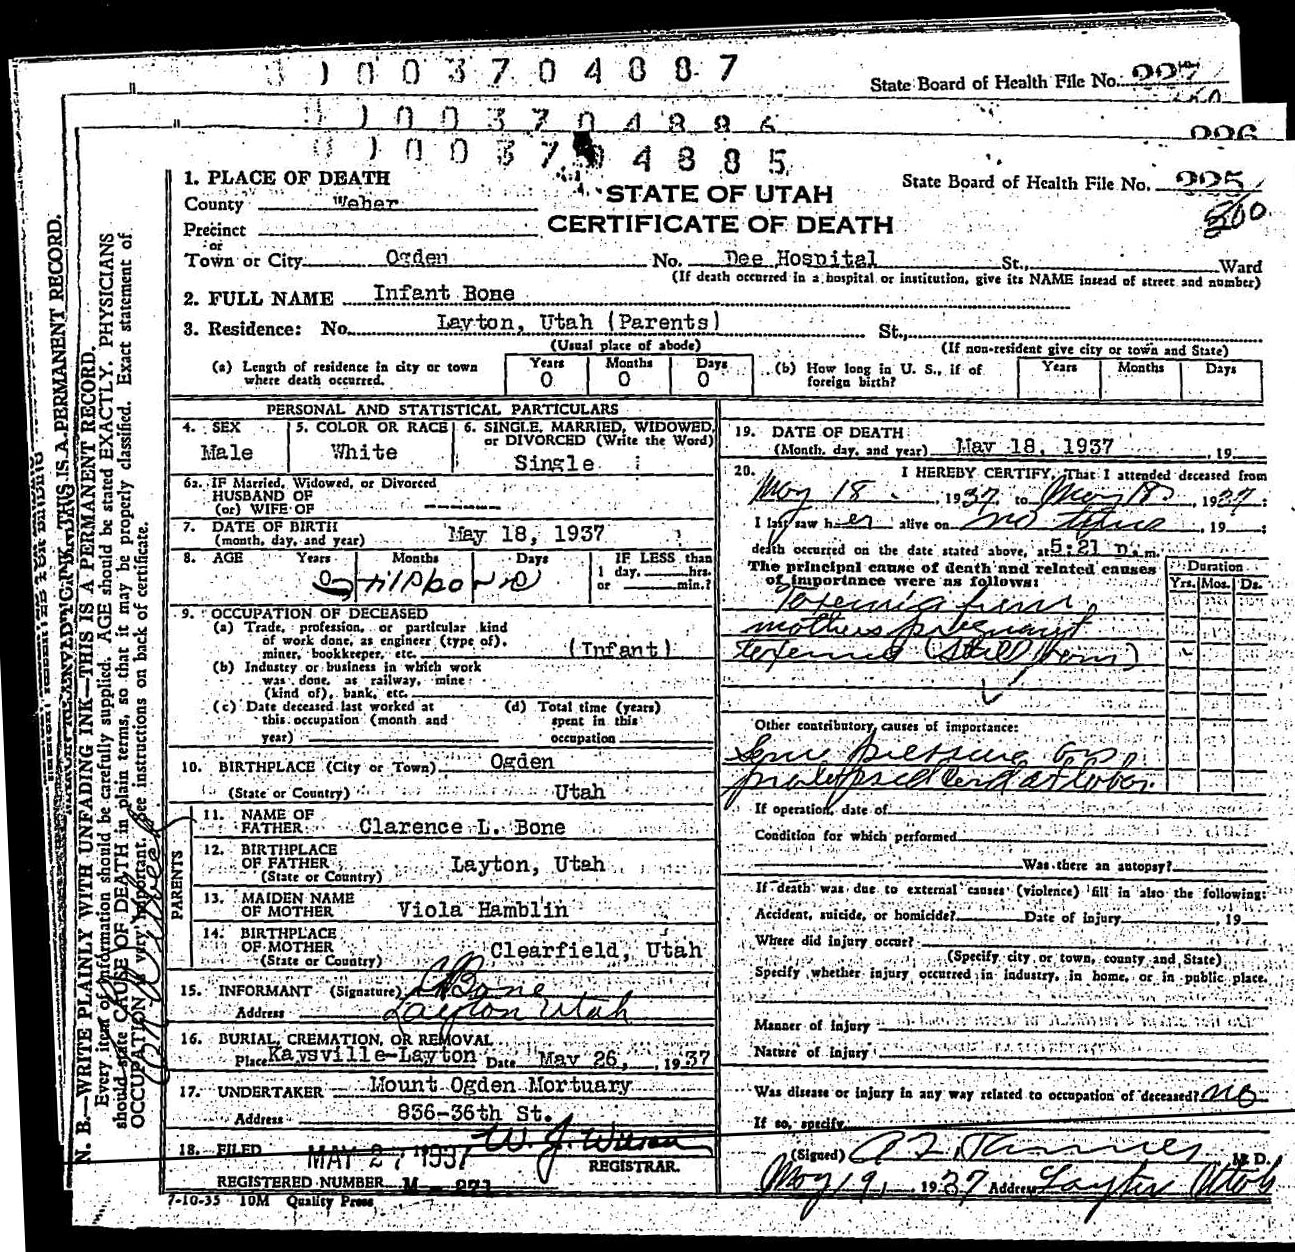 0003704887
State Board of Health File No. 227
0003704886
226
0003704885
1. PLACE OF DEATH
STATE OF UTAH
CERTIFICATE OF DEATH
State Board of Health File No. 225
County Weber
Precinct
or
Town or City Ogden No. Dee Hospital St., Ward
(If death occurred in a hospital or institution, give its NAME insead of street and number)
2. FULL NAME Infant Bone
3. Residence: No. Layton, Utah (Parents) St.,
(Usual place of abode)
(If non-resident give city or town and State)
(a) Length of residence in city or town where death occurred. Years 0 Months 0 Days 0
(b) How long in U. S., if of foreign birth? Years Months Days
PERSONAL AND STATISTICAL PARTICULARS
4. SEX Male
5. COLOR OR RACE White
6. SINGLE, MARRIED, WIDOWED, or DIVORCED (Write the Word) Single
6a. IF Married, Widowed, or Divorced
HUSBAND OF
(or) WIFE OF -------
7. DATE OF BIRTH
(month, day, and year) May 18, 1937
8. AGE Years Months Days IF LESS than
1 day, hrs.
or min.?
Stillborn
9. OCCUPATION OF DECEASED
(a) Trade, profession, or particular kind
of work done, as engineer (type of),
miner, bookkeeper, etc. (Infant)
(b) Industry or business in which work
was done, as railway, mine
(kind of), bank, etc.
(c) Date deceased last worked at
this occupation (month and
year)
(d) Total time (years)
spent in this
occupation
10. BIRTHPLACE (City or Town) Ogden
(State or Country) Utah
PARENTS
11. NAME OF
FATHER Clarence L. Bone
12. BIRTHPLACE
OF FATHER Layton, Utah
(State or Country)
13. MAIDEN NAME
OF MOTHER Viola Hamblin
14. BIRTHPLACE
OF MOTHER Clearfield, Utah
(State or Country)
15. INFORMANT (Signature) Bone
Address Layton Utah
16. BURIAL, CREMATION, OR REMOVAL
Place Kaysville-Layton Date May 26, 1937
17. UNDERTAKER Mount Ogden Mortuary
Address 836-36th St.
18. FILED MAY 27 1937 W. J. Wilson
REGISTRAR.
REGISTERED NUMBER M-271
7-10-35 10M Quality Press
19. DATE OF DEATH
(Month, day, and year) May 18, 1937, 19
20. I HEREBY CERTIFY, That I attended deceased from
May 18, 1937 to May 18, 1937;
I last saw her alive on no time, 19;
death occurred on the date stated above, at 5:21 p.m.
The principal cause of death and related causes
of importance were as follows:
Duration
Yrs. Mos. Ds.
Toxemia from
mothers pregnancy
toxemia (Still born)
Other contributory causes of importance:
Some pressure on
prolapsed cord at labor.
If operation, date of
Condition for which performed
Was there an autopsy?
If death was due to external causes (violence) fill in also the following:
Accident, suicide, or homicide? Date of injury, 19
Where did injury occur?
(Specify city or town, county and State)
Specify whether injury occurred in industry, in home, or in public place.
Manner of injury
Nature of injury
Was disease or injury in any way related to occupation of deceased? no
If so, specify
(Signed) M. D.
May 19, 1937 Address Layton Utah
N. B.—WRITE PLAINLY WITH UNFADING INK—THIS IS A PERMANENT RECORD.
Every item of information should be carefully supplied. AGE should be stated EXACTLY. PHYSICIANS
should state CAUSE OF DEATH in plain terms, so that it may be properly classified. Exact statement of
OCCUPATION is very important. See instructions on back of certificate.
THIS IS A PERMANENT RECORD.